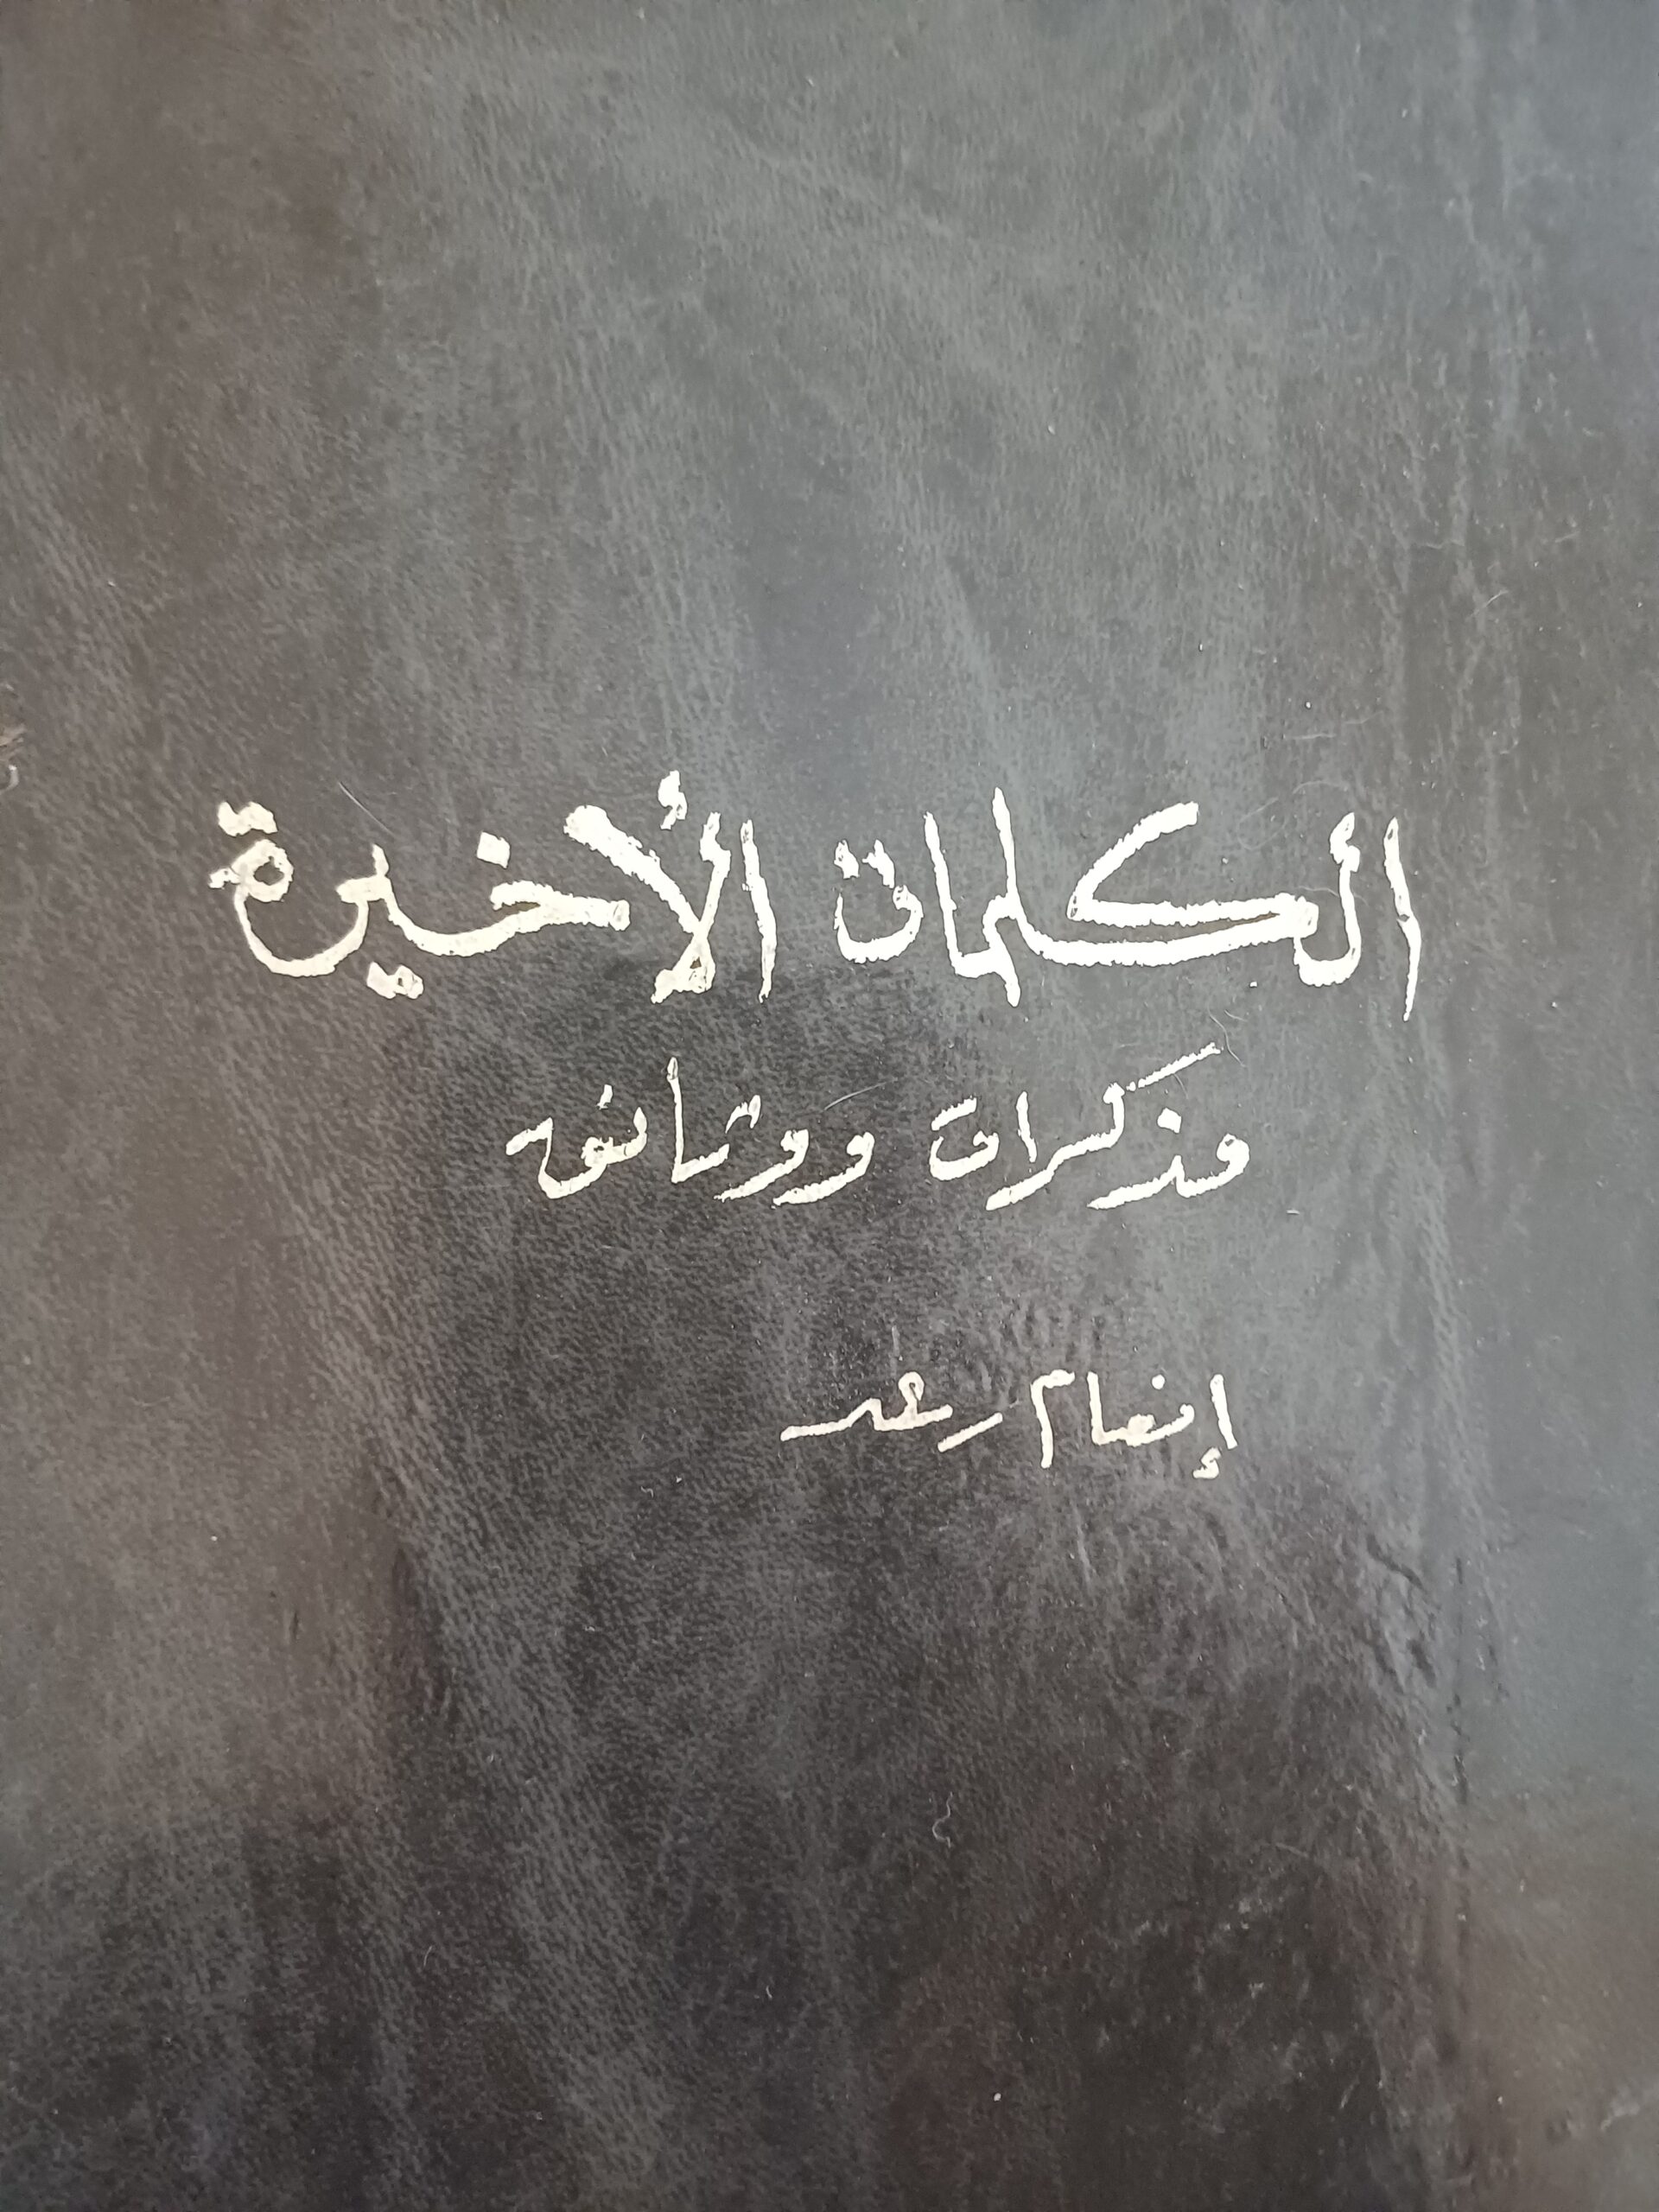 الكلمات الأخيرة
مذكرات ووثائق
إنعام رعد